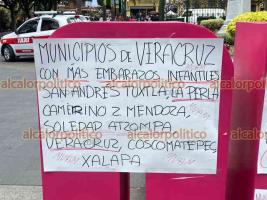 MUNICIPIOS DE VERACRUZ
CON MÁS EMBARAZOS INFANTILES
SAN ANDRÉS TUXTLA, LA PERLA
CAMERINO Z. MENDOZA,
SOLEDAD ATZOMPA
VERACRUZ, COSCOMATEPEC,
XALAPA
alcalorpolitico
alcalorpolitico
alcalorpolitico